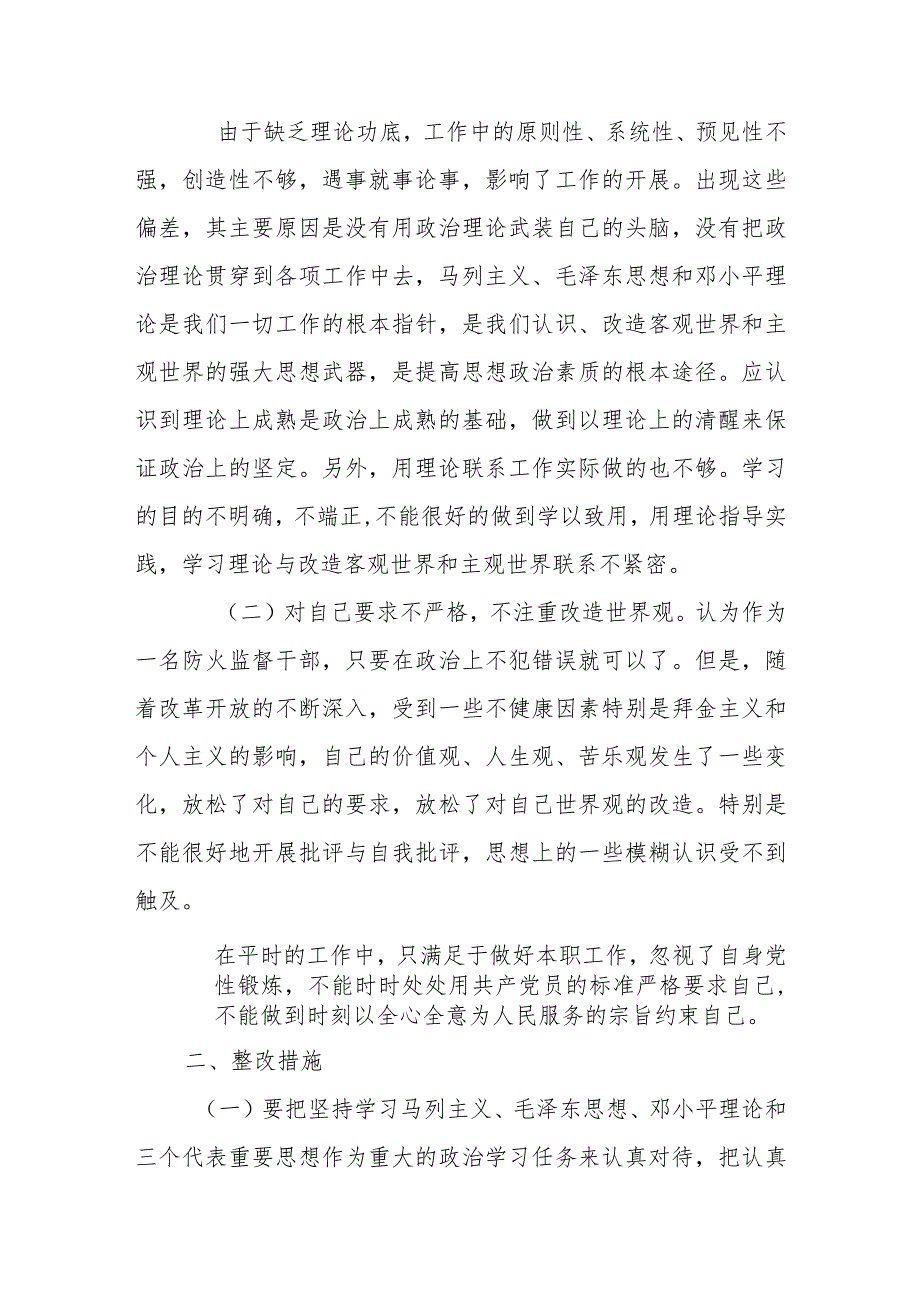 由于缺乏理论功底，工作中的原则性、系统性、预见性不
强，创造性不够，遇事就事论事，影响了工作的开展。出现这些
偏差，其主要原因是没有用政治理论武装自己的头脑，没有把政
治理论贯穿到各项工作中去，马列主义、毛泽东思想和邓小平理
论是我们一切工作的根本指针，是我们认识、改造客观世界和主
观世界的强大思想武器，是提高思想政治素质的根本途径。应认
识到理论上成熟是政治上成熟的基础，做到以理论上的清醒来保
证政治上的坚定。另外，用理论联系工作实际做的也不够。学习
的目的不明确，不端正,不能很好的做到学以致用，用理论指导实
践，学习理论与改造客观世界和主观世界联系不紧密。
（二）对自己要求不严格，不注重改造世界观。认为作为
一名防火监督干部，只要在政治上不犯错误就可以了。但是，随
着改革开放的不断深入，受到一些不健康因素特别是拜金主义和
个人主义的影响，自己的价值观、人生观、苦乐观发生了一些变
化，放松了对自己的要求，放松了对自己世界观的改造。特别是
不能很好地开展批评与自我批评，思想上的一些模糊认识受不到
触及。
在平时的工作中，只满足于做好本职工作，忽视了自身党
性锻炼，不能时时处处用共产党员的标准严格要求自己,
不能做到时刻以全心全意为人民服务的宗旨约束自己。
二、整改措施
（一）要把坚持学习马列主义、毛泽东思想、邓小平理论和
三个代表重要思想作为重大的政治学习任务来认真对待，把认真